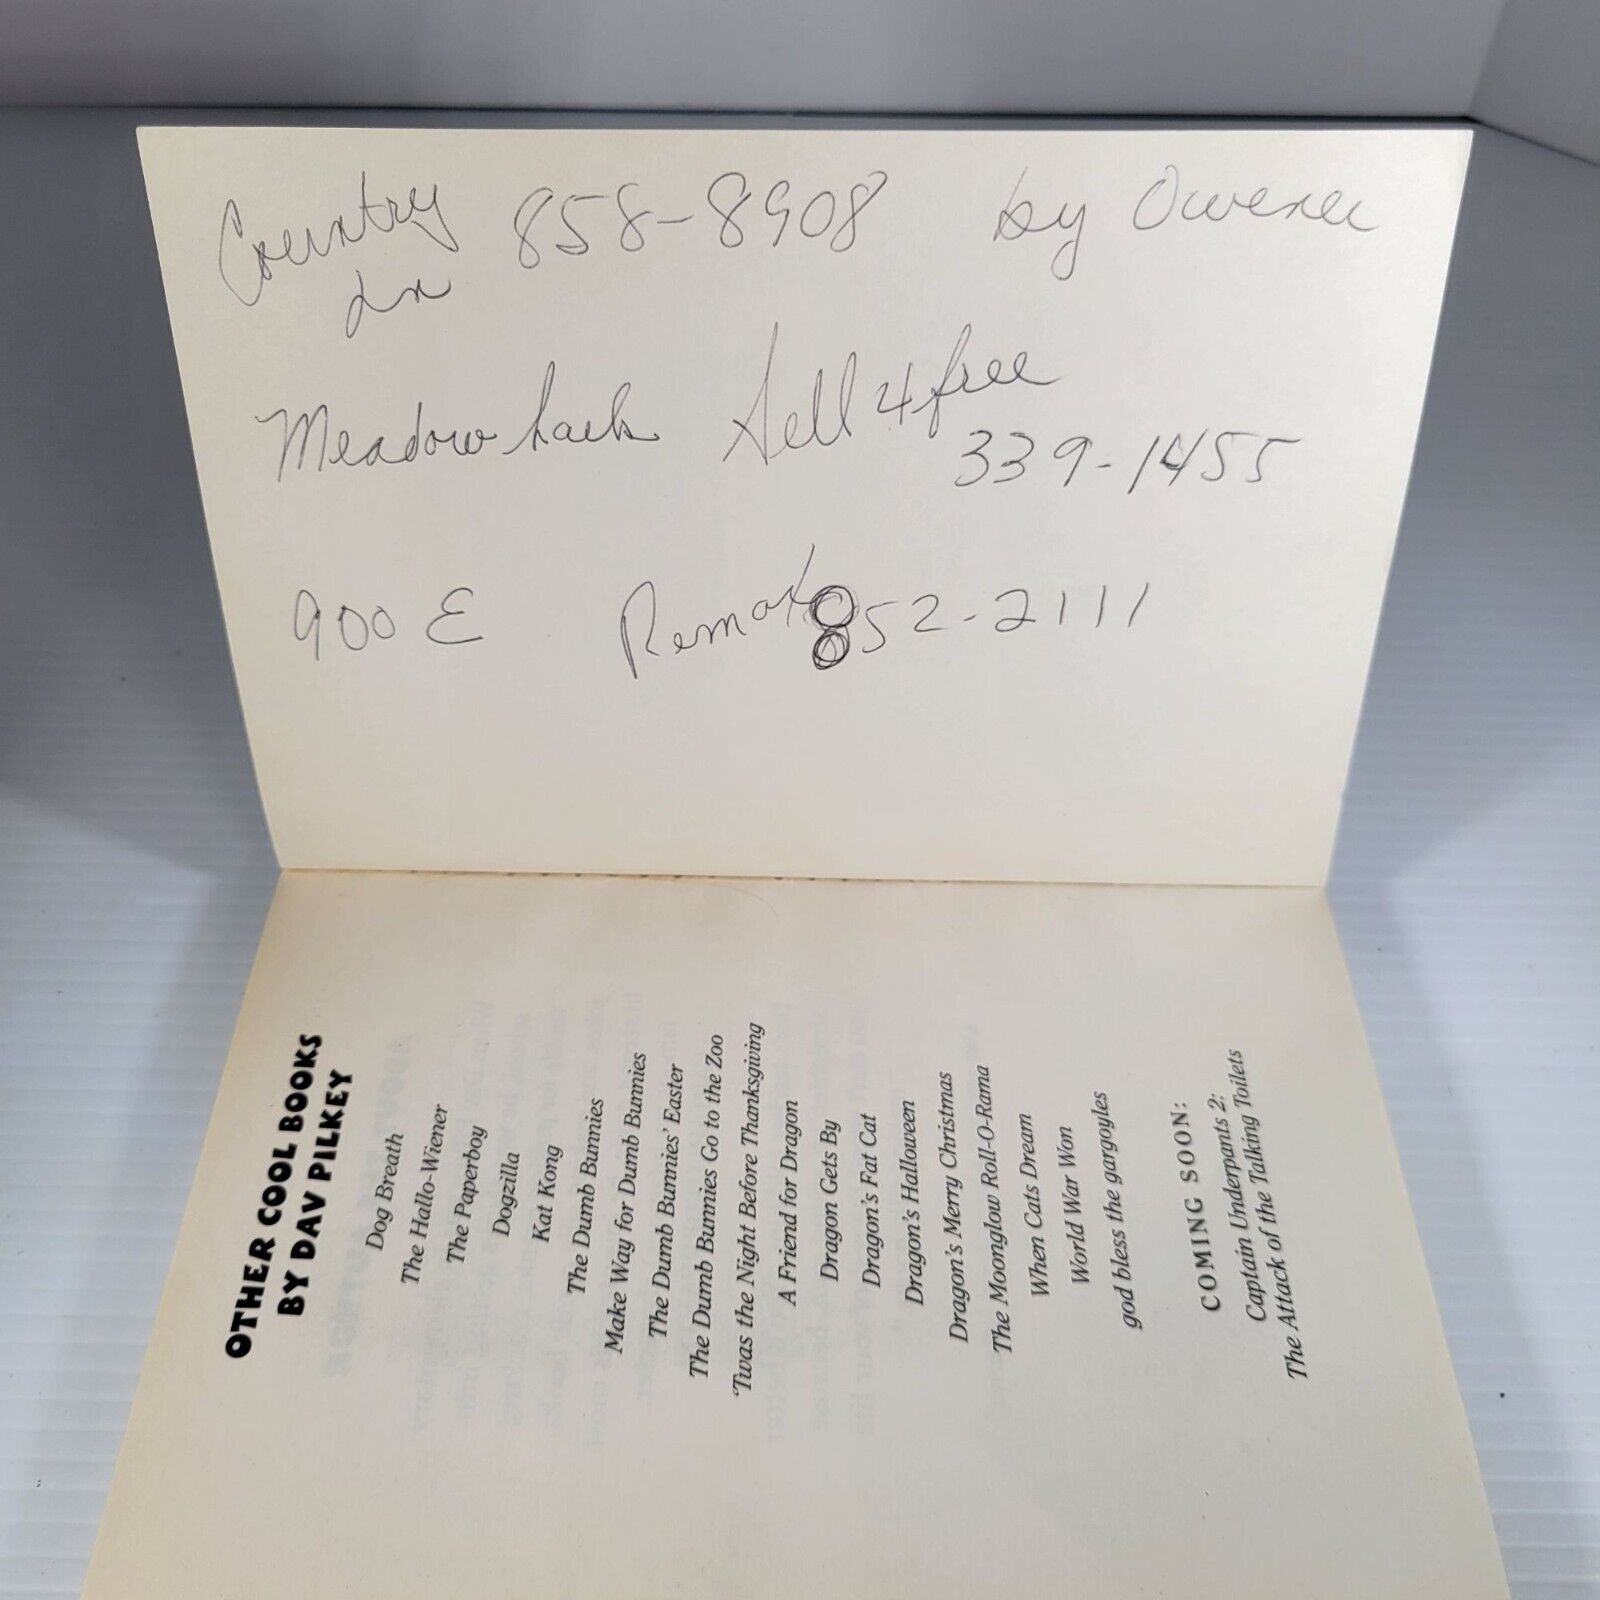 Country 858-8908 by Owener
Ln
Meadow Lark Sell 4 free
339-1455
900 E Remax 852-2111
OTHER COOL BOOKS
BY DAV PILKEY
Dog Breath
The Hallo-Wiener
The Paperboy
Dogzilla
Kat Kong
The Dumb Bunnies
Make Way for Dumb Bunnies
The Dumb Bunnies' Easter
The Dumb Bunnies Go to the Zoo
'Twas the Night Before Thanksgiving
A Friend for Dragon
Dragon Gets By
Dragon's Fat Cat
Dragon's Halloween
Dragon's Merry Christmas
The Moonglow Roll-O-Rama
When Cats Dream
World War Won
god bless the gargoyles
COMING SOON:
Captain Underpants 2:
The Attack of the Talking Toilets